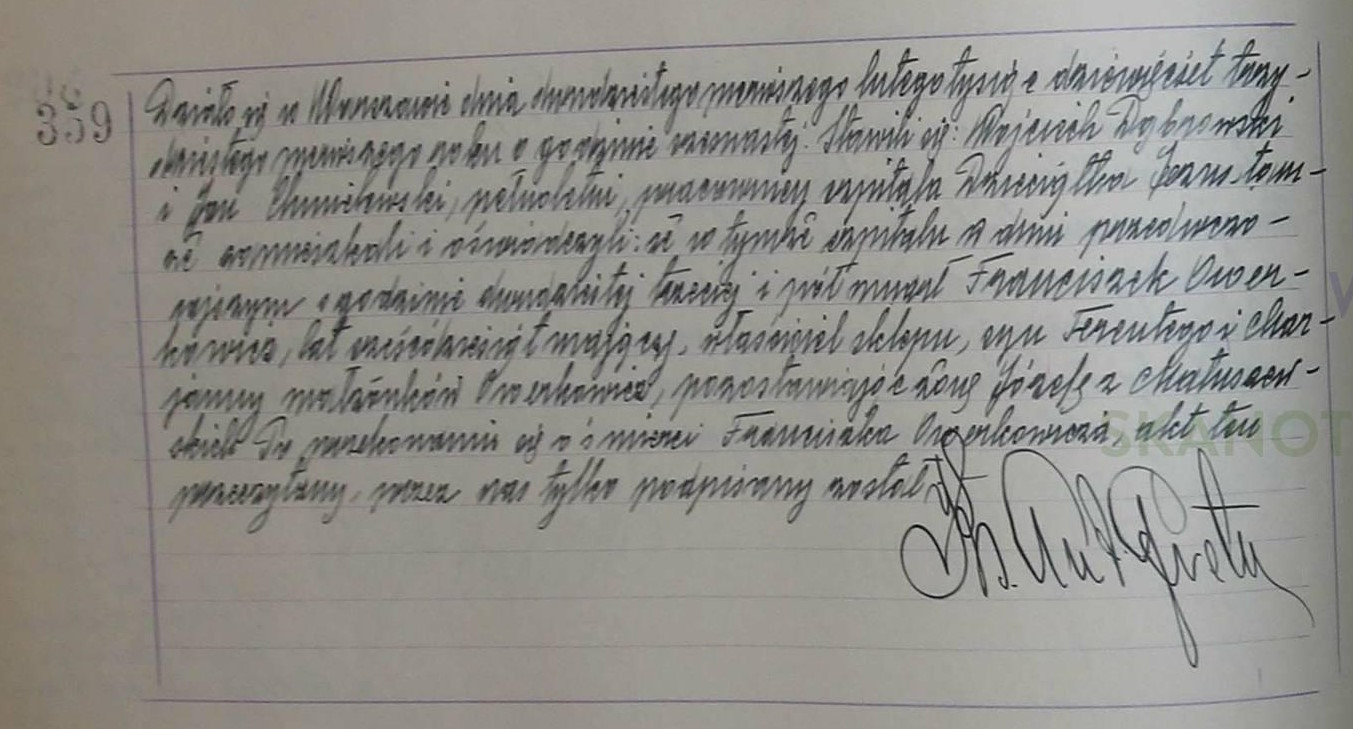 359
Działo się w Warszawie dnia dwudziestego pierwszego lutego tysiąc dziewięćset trzy-
dziestego pierwszego roku o godzinie szesnastej. Stawili się: Wojciech Dąbrowski
i Jan Chmielewski, pełnoletni, pracownicy szpitala Dzieciątka Jezus tam-
że zamieszkali i oświadczyli: że w tymże szpitalu w dniu przedwczo-
rajszym o godzinie dwudziestej trzeciej i pół zmarł Franciszek Ower-
kowicz, lat sześćdziesiąt mający, właściciel sklepu, syn Terentego i Mar-
janny małżonków Owerkowicz, pozostawiając żonę Józefę z Matuszew-
skich. Po przekonaniu się o śmierci Franciszka Owerkowicza, akt ten
przeczytany, przez nas tylko podpisany został.
SKANOT